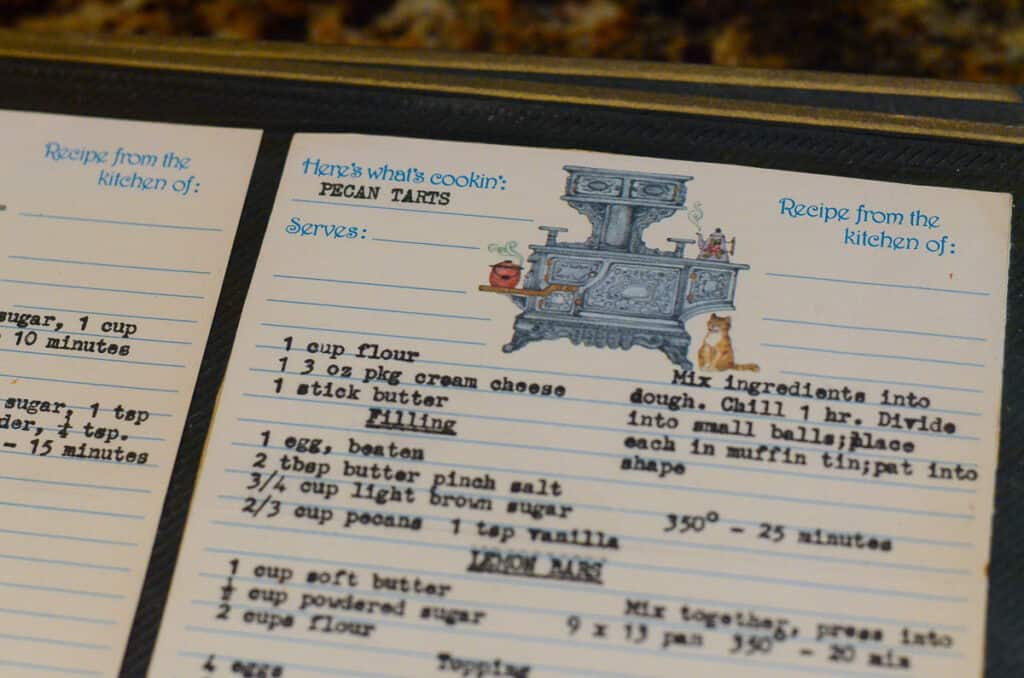 Recipe from the
kitchen of:
sugar, 1 cup
10 minutes
sugar, 1 tsp
der, ¼ tsp.
- 15 minutes
Here's what's cookin':
PECAN TARTS
Serves:
Recipe from the
kitchen of:
1 cup flour
1 3 oz pkg cream cheese
1 stick butter
Filling
1 egg, beaten
2 tbsp butter pinch salt
3/4 cup light brown sugar
2/3 cup pecans 1 tsp vanilla
Mix ingredients into
dough. Chill 1 hr. Divide
into small balls;place
each in muffin tin;pat into
shape
350° - 25 minutes
LEMON BARS
1 cup soft butter
½ cup powdered sugar
2 cups flour
Mix together, press into
9 x 13 pan 350° - 20 min
4 eggs
Topping